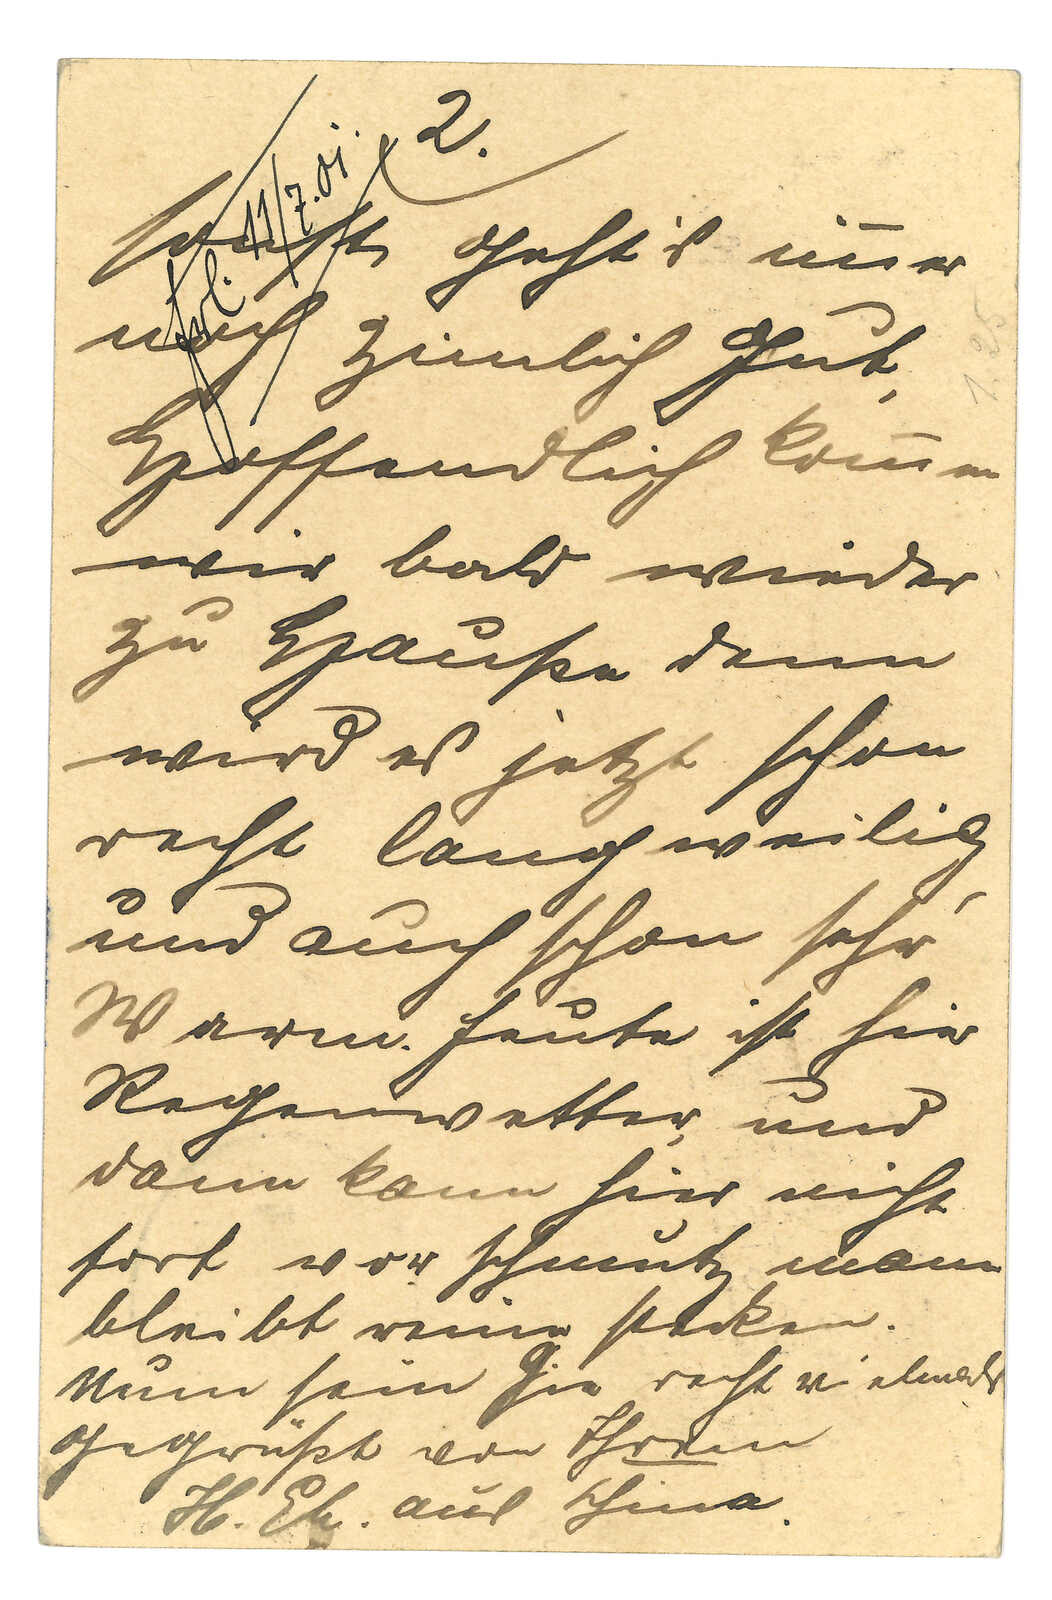 2.
erl. 11/7.01.
sonst geht's im̅er
noch zimlich gut,
Hoffendlich kom̅en
wir bald wieder
zu Hauße denn
wird es jetzt schon
recht langweilig
und auch schon sehr
Warm. heute ist hier
Regenwetter, und
dann kann hier nicht
fort vor schmutz mann
bleibt reine stecken.
Nunn sein Sie recht vielmals
gegrüßt von Ihrem
H. Eh. aus China.